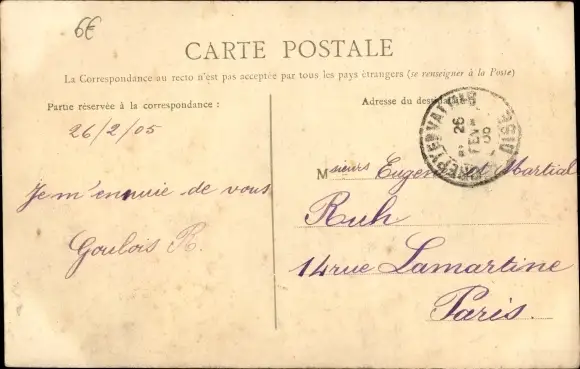 6€
CARTE POSTALE
La Correspondance au recto n'est pas acceptée par tous les pays étrangers (se renseigner à la Poste)
Partie réservée à la correspondance :
Adresse du destinataire
26/2/05
26
FEVR
AISNE
Messieurs Eugene et Martial
Je m'ennuie de vous
Ruh
Goulois R.
14 rue Lamartine
Paris.